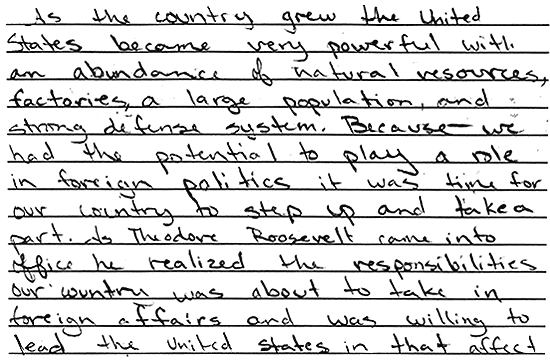 As the country grew the United
States became very powerful with
an abundance of natural resources,
factories, a large population, and
strong defense system. Because we
had the potential to play a role
in foreign politics it was time for
our country to step up and take a
part. As Theodore Roosevelt came into
office he realized the responsibilities
our country was about to take in
foreign affairs and was willing to
lead the United States in that affect